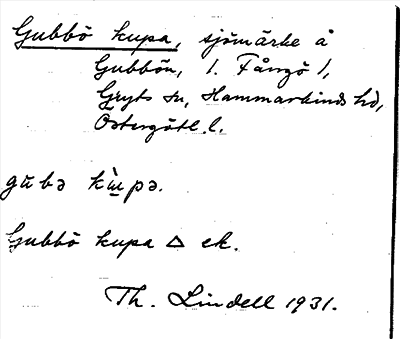 Gubbö kupa, sjömärke å
Gubbön, l. Fångö l,
Gryts sn, Hammarkinds hd,
Östergötl. l.
gŭbə kɯ̀pə.
Gubbö kupa △ ek.
Th. Lindell 1931.